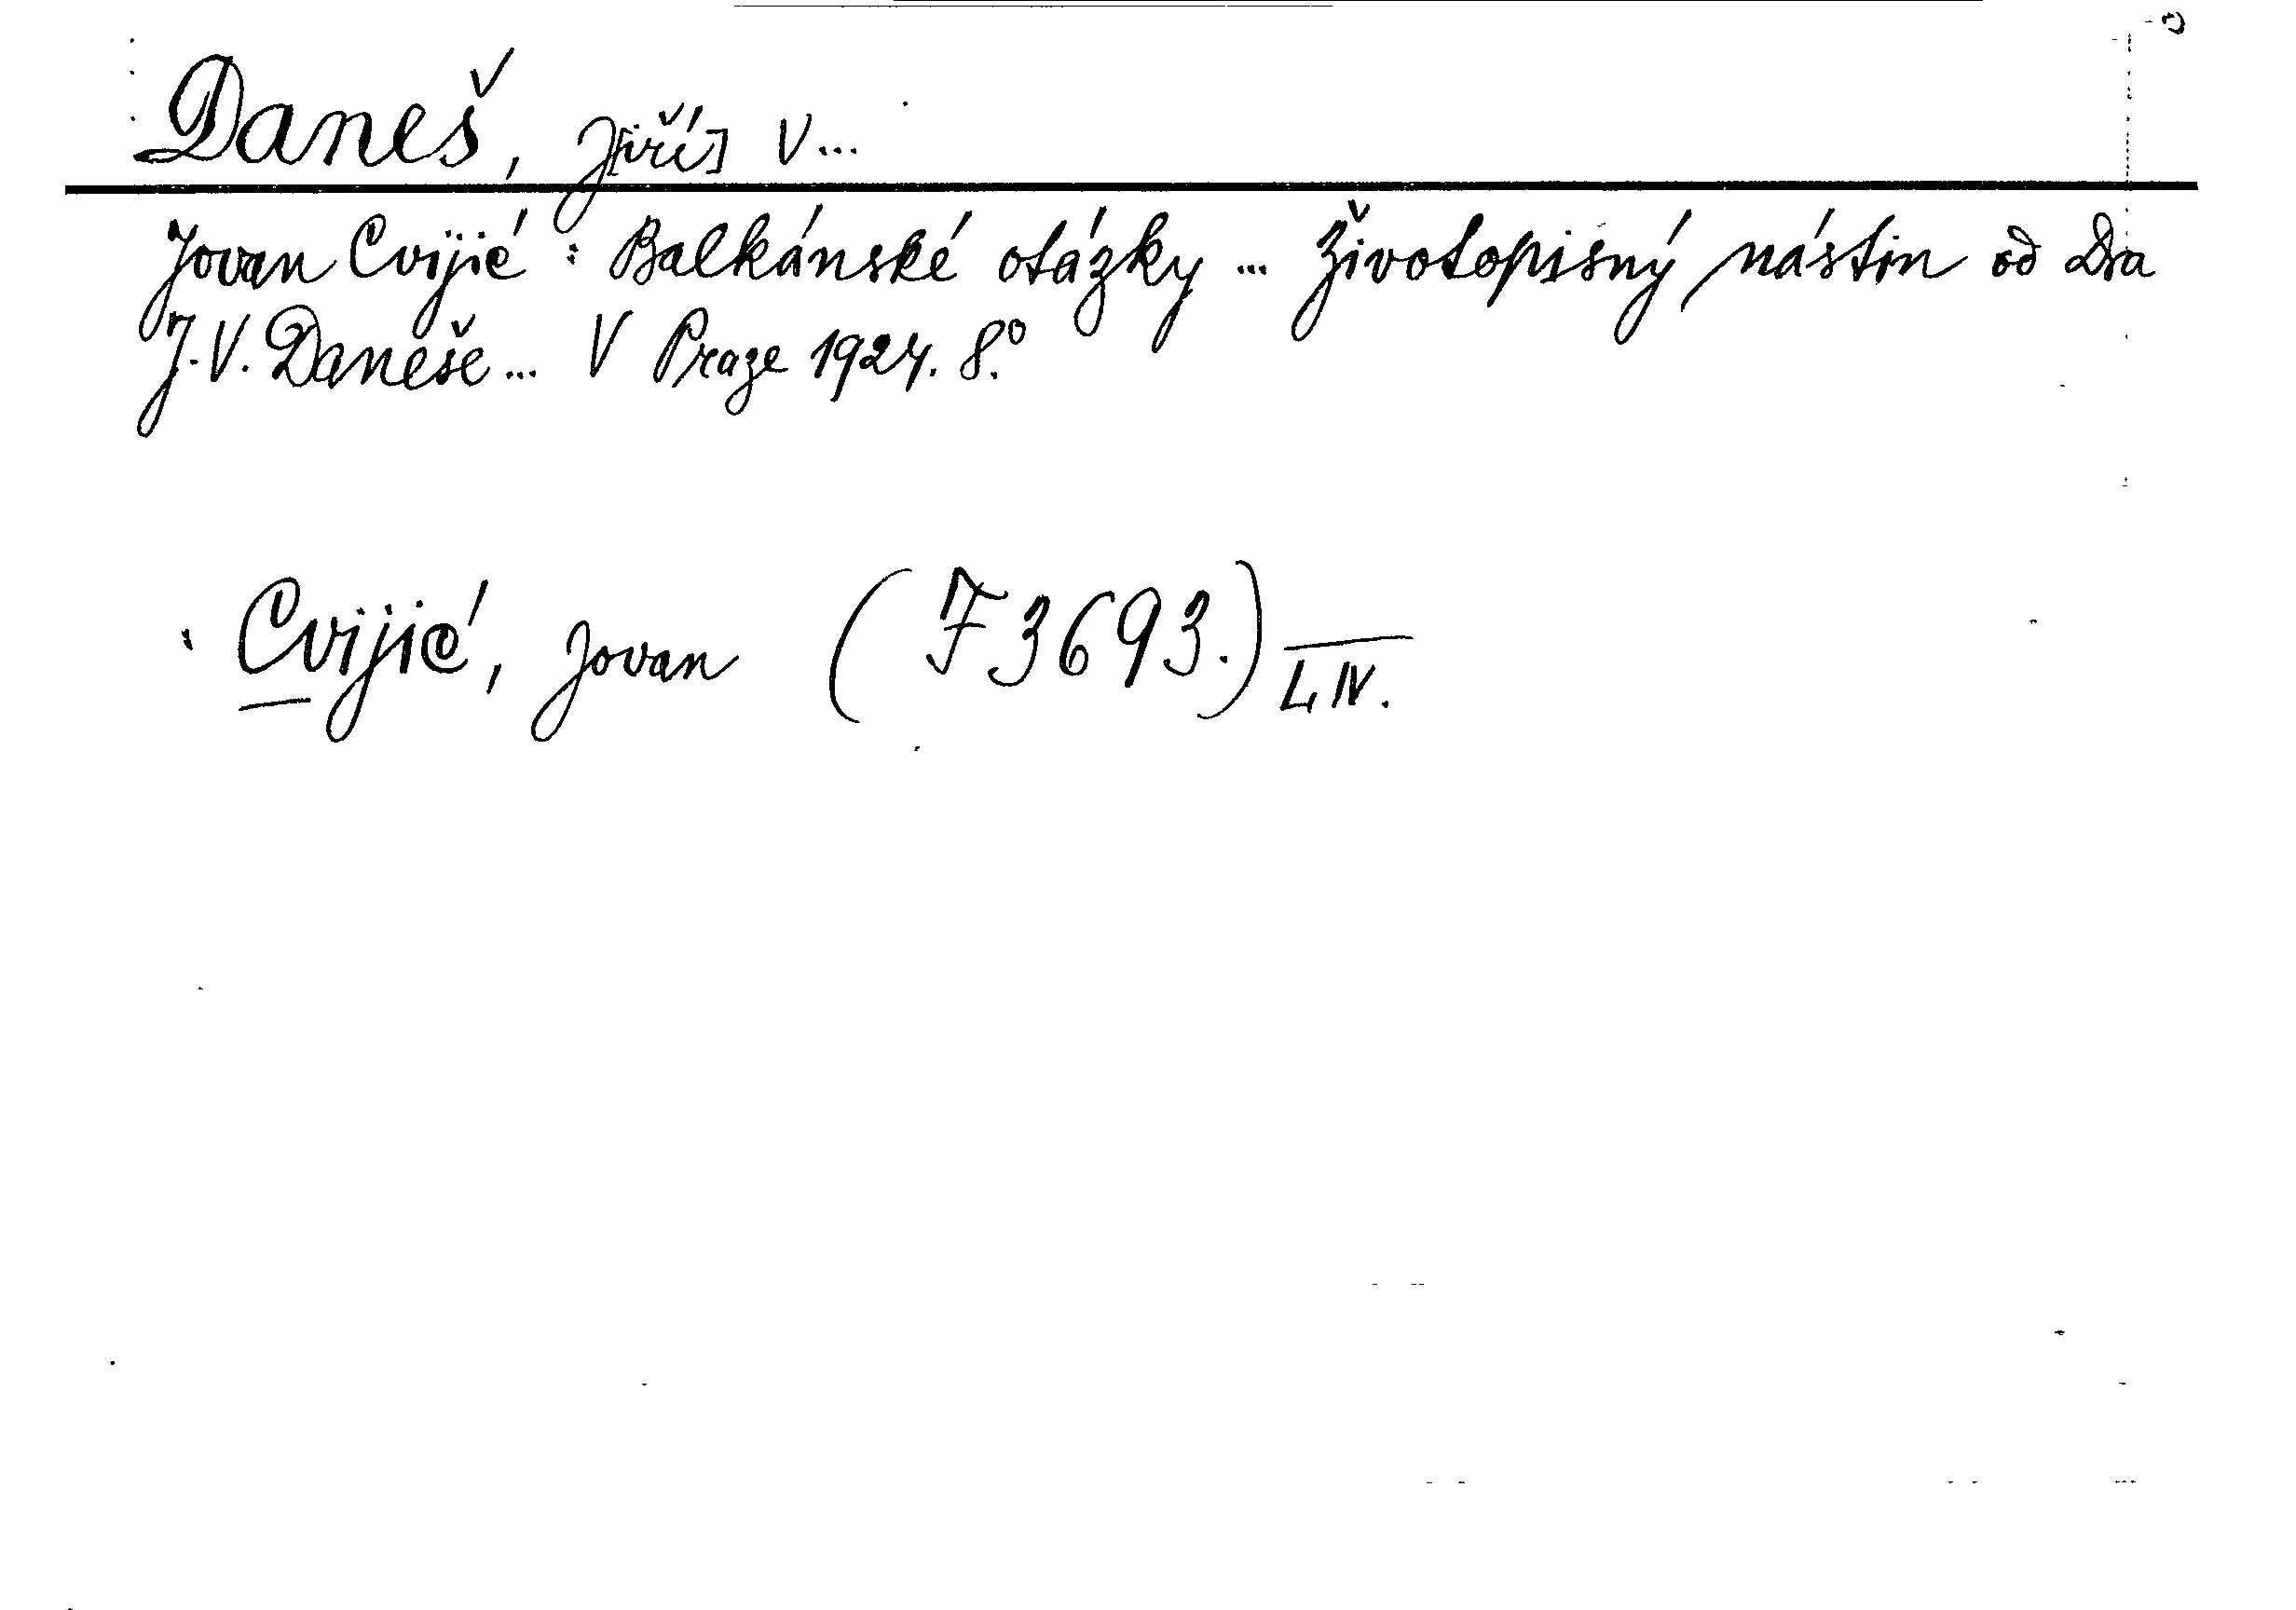 Daneš, J[iří] V...
Jovan Cvijić: Balkánské otázky... Životopisný nástin od Dra
J. V. Daneše... V Praze 1924. 8.°
Cvijić, Jovan (F 3693.) L IV.